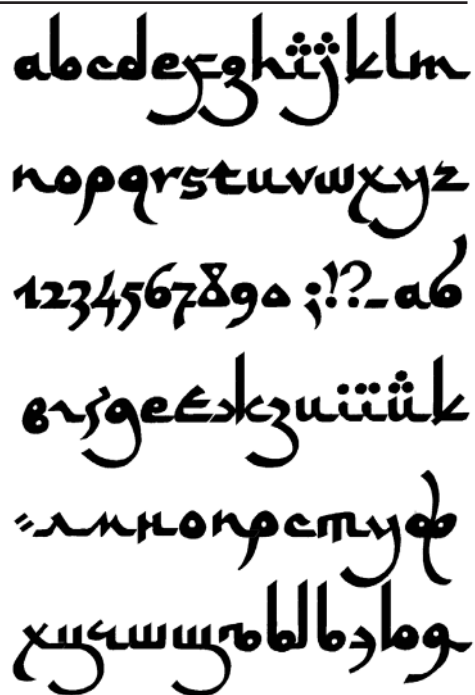 abcdefghijklm
nopqrstuvwxyz
1234567890 ;!?-аб
вгґдеєжзиіїйк
"лмнопрстуф
хцчшщъыьэюя